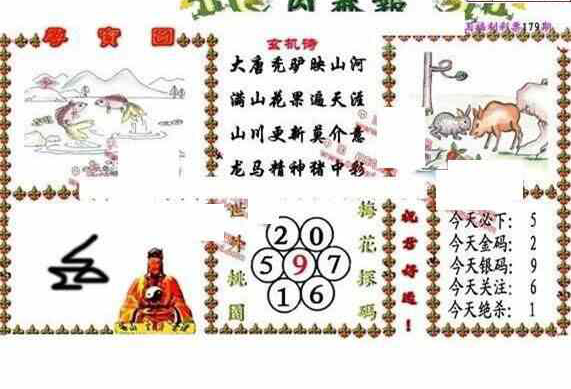 179期
寻宝图
玄机诗
大唐秃驴映山河
满山花果遍天涯
山川更新莫介意
龙马精神猪中彩
世外桃園
2 0
5 9 7
1 6
梅花探码
祝君好运！
今天必下：5
今天金码：2
今天银码：9
今天关注：6
今天绝杀：1